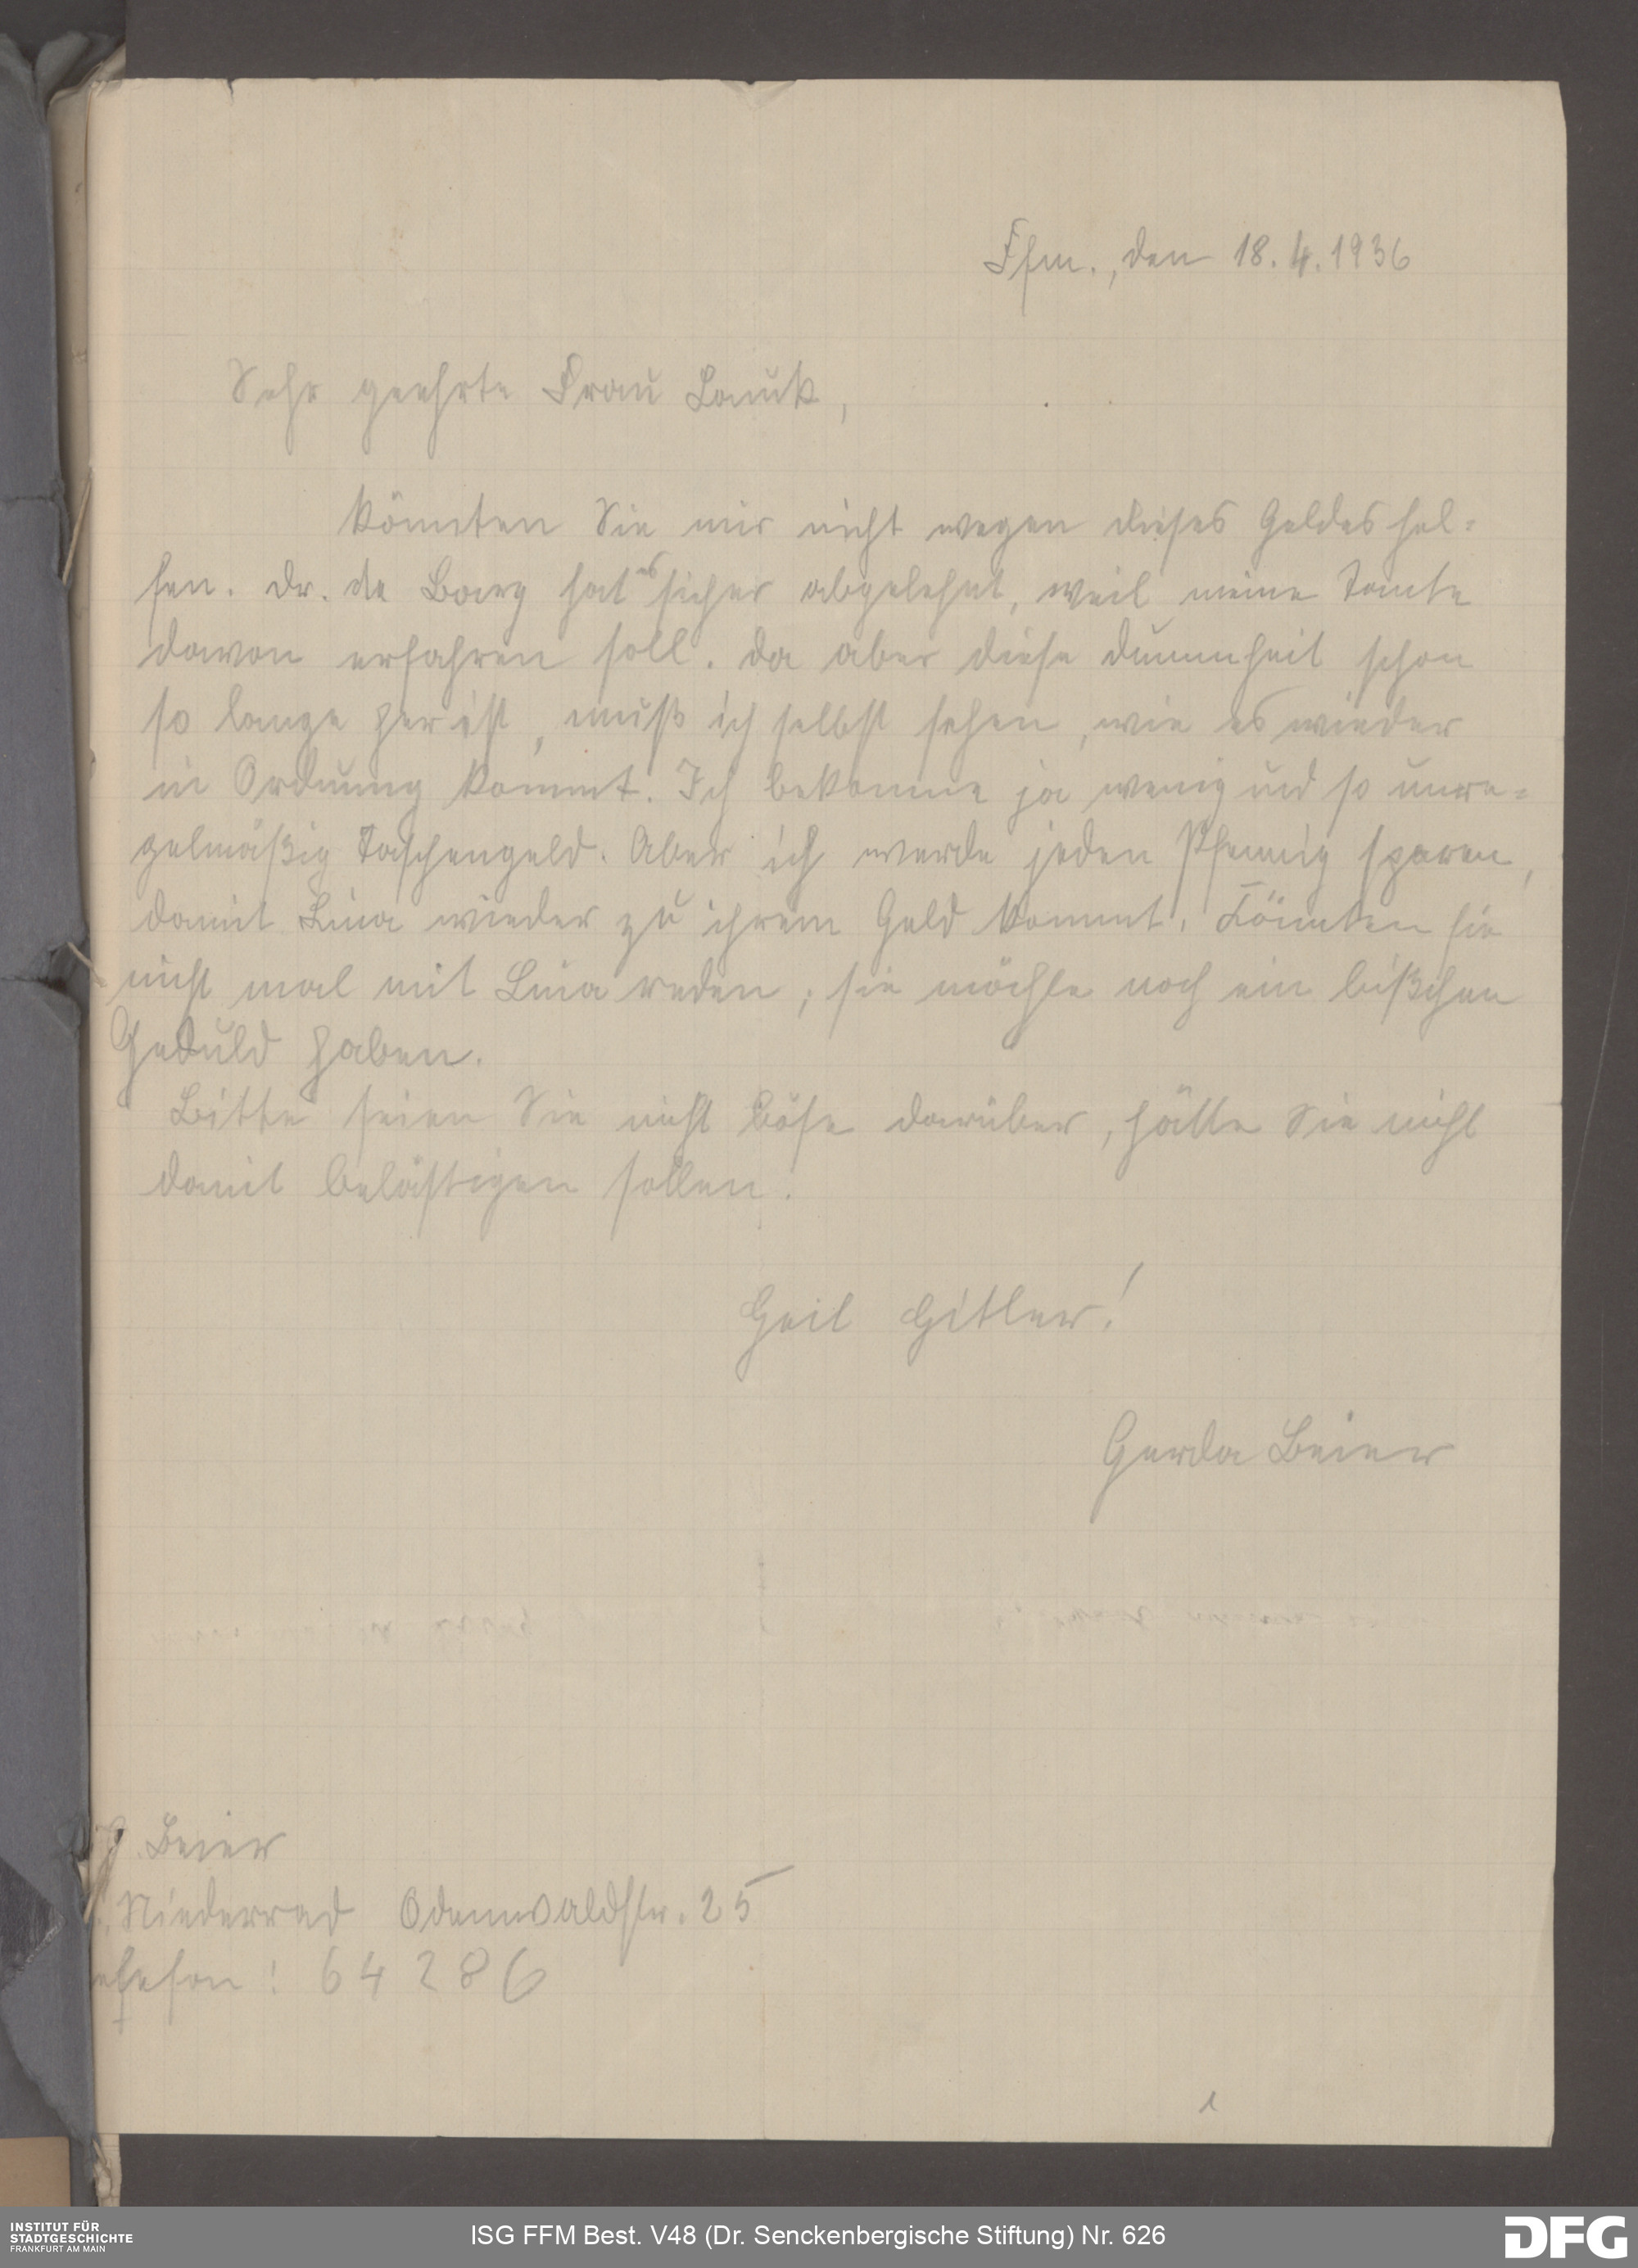 Ffm., den 18.4.1936
Sehr geehrte Frau Lauck,
Könnten Sie mir nicht wegen dieses Geldes hel=
fen. Dr. de Bary hat es sicher abgelehnt, weil meine Tante
davon erfahren soll. Da aber diese Dummheit schon
so lange her ist, muß ich selbst sehen, wie es wieder
in Ordnung kommt. Ich bekomme ja wenig und so unre=
gelmäßig Taschengeld. Aber ich werde jeden Pfennig sparen,
damit Lina wieder zu ihrem Geld kommt. Könnten sie
nicht mal mit Lina reden; sie möchte noch ein bißchen
Geduld haben.
Bitte seien Sie nicht böse darüber, hätte Sie nicht
damit belästigen sollen.
Heil Hitler!
Gerda Beier
G. Beier
Niederrad Odenwaldstr. 25
elefon: 64286
1
INSTITUT FÜR
STADTGESCHICHTE
FRANKFURT AM MAIN
ISG FFM Best. V48 (Dr. Senckenbergische Stiftung) Nr. 626
DFG